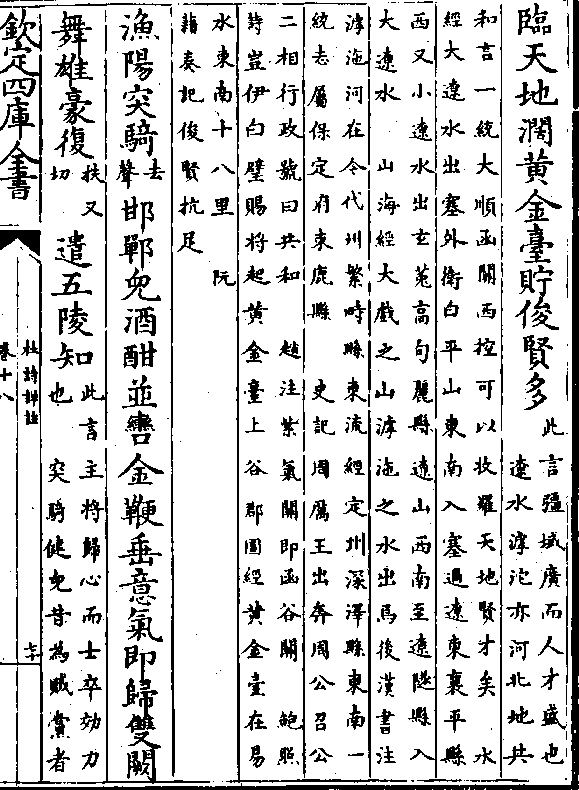 臨天地濶黃金臺貯俊賢多
此言疆域廣而人才盛也
遼水滹沱亦河北地共
和言一統大順函關西控可以收羅天地賢才矣 水
經大遼水出塞外衛白平山東南入塞過遼東襄平縣
西又小遼水出玄菟高句麗縣遼山西南至遼隧縣入
大遼水 山海經大戲之山滹沱之水出焉後漢書注
滹沱河在今代州繁畤縣東流經定州深澤縣東南一
統志屬保定府束鹿縣 史記周厲王出奔周公召公
二相行政號曰共和 趙注紫氣關即函谷關 鮑照
詩豈伊白璧賜將起黃金臺上谷郡圖經黃金臺在易
水東南十八里 阮
籍奏記俊賢抗足
漁陽突騎去聲邯鄲兒酒酣並轡金鞭垂意氣即歸雙闕
舞雄豪復扶又切遣五陵知
此言主將歸心而士卒効力
也 突騎健兒昔為賊黨者
欽定四庫全書
杜詩詳註
卷十八